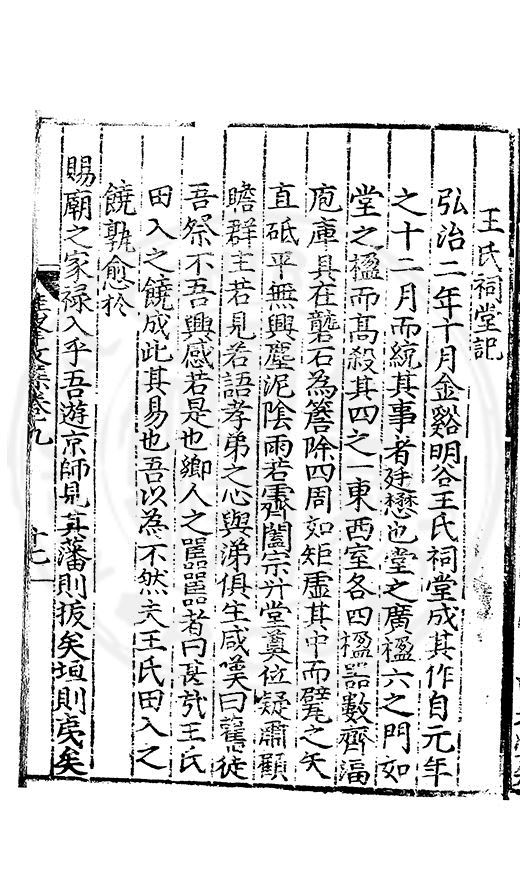 王氏祠堂記
弘治二年十月金谿明谷王氏祠堂成其作自元年
之十二月而統其事者廷懋也堂之廣楹六之門如
堂之楹而高殺其四之一東西室各四楹器數齊湢
庖庫具在礱石為簷除四周如矩虛其中而甓之矢
直砥平無興塵泥陰雨若霽闔宗廾堂奠位疑肅顧
瞻群主若見若語孝弟之心與涕俱生咸喚曰舊徒
吾祭不吾興感若是也鄉人之嚚嚚者曰甚哉王氏
田入之饒成此其易也吾以為不然夫王氏田入之
饒孰愈於
賜廟之家祿入乎吾遊京師見其藩則拔矣垣則夷矣
文集卷九